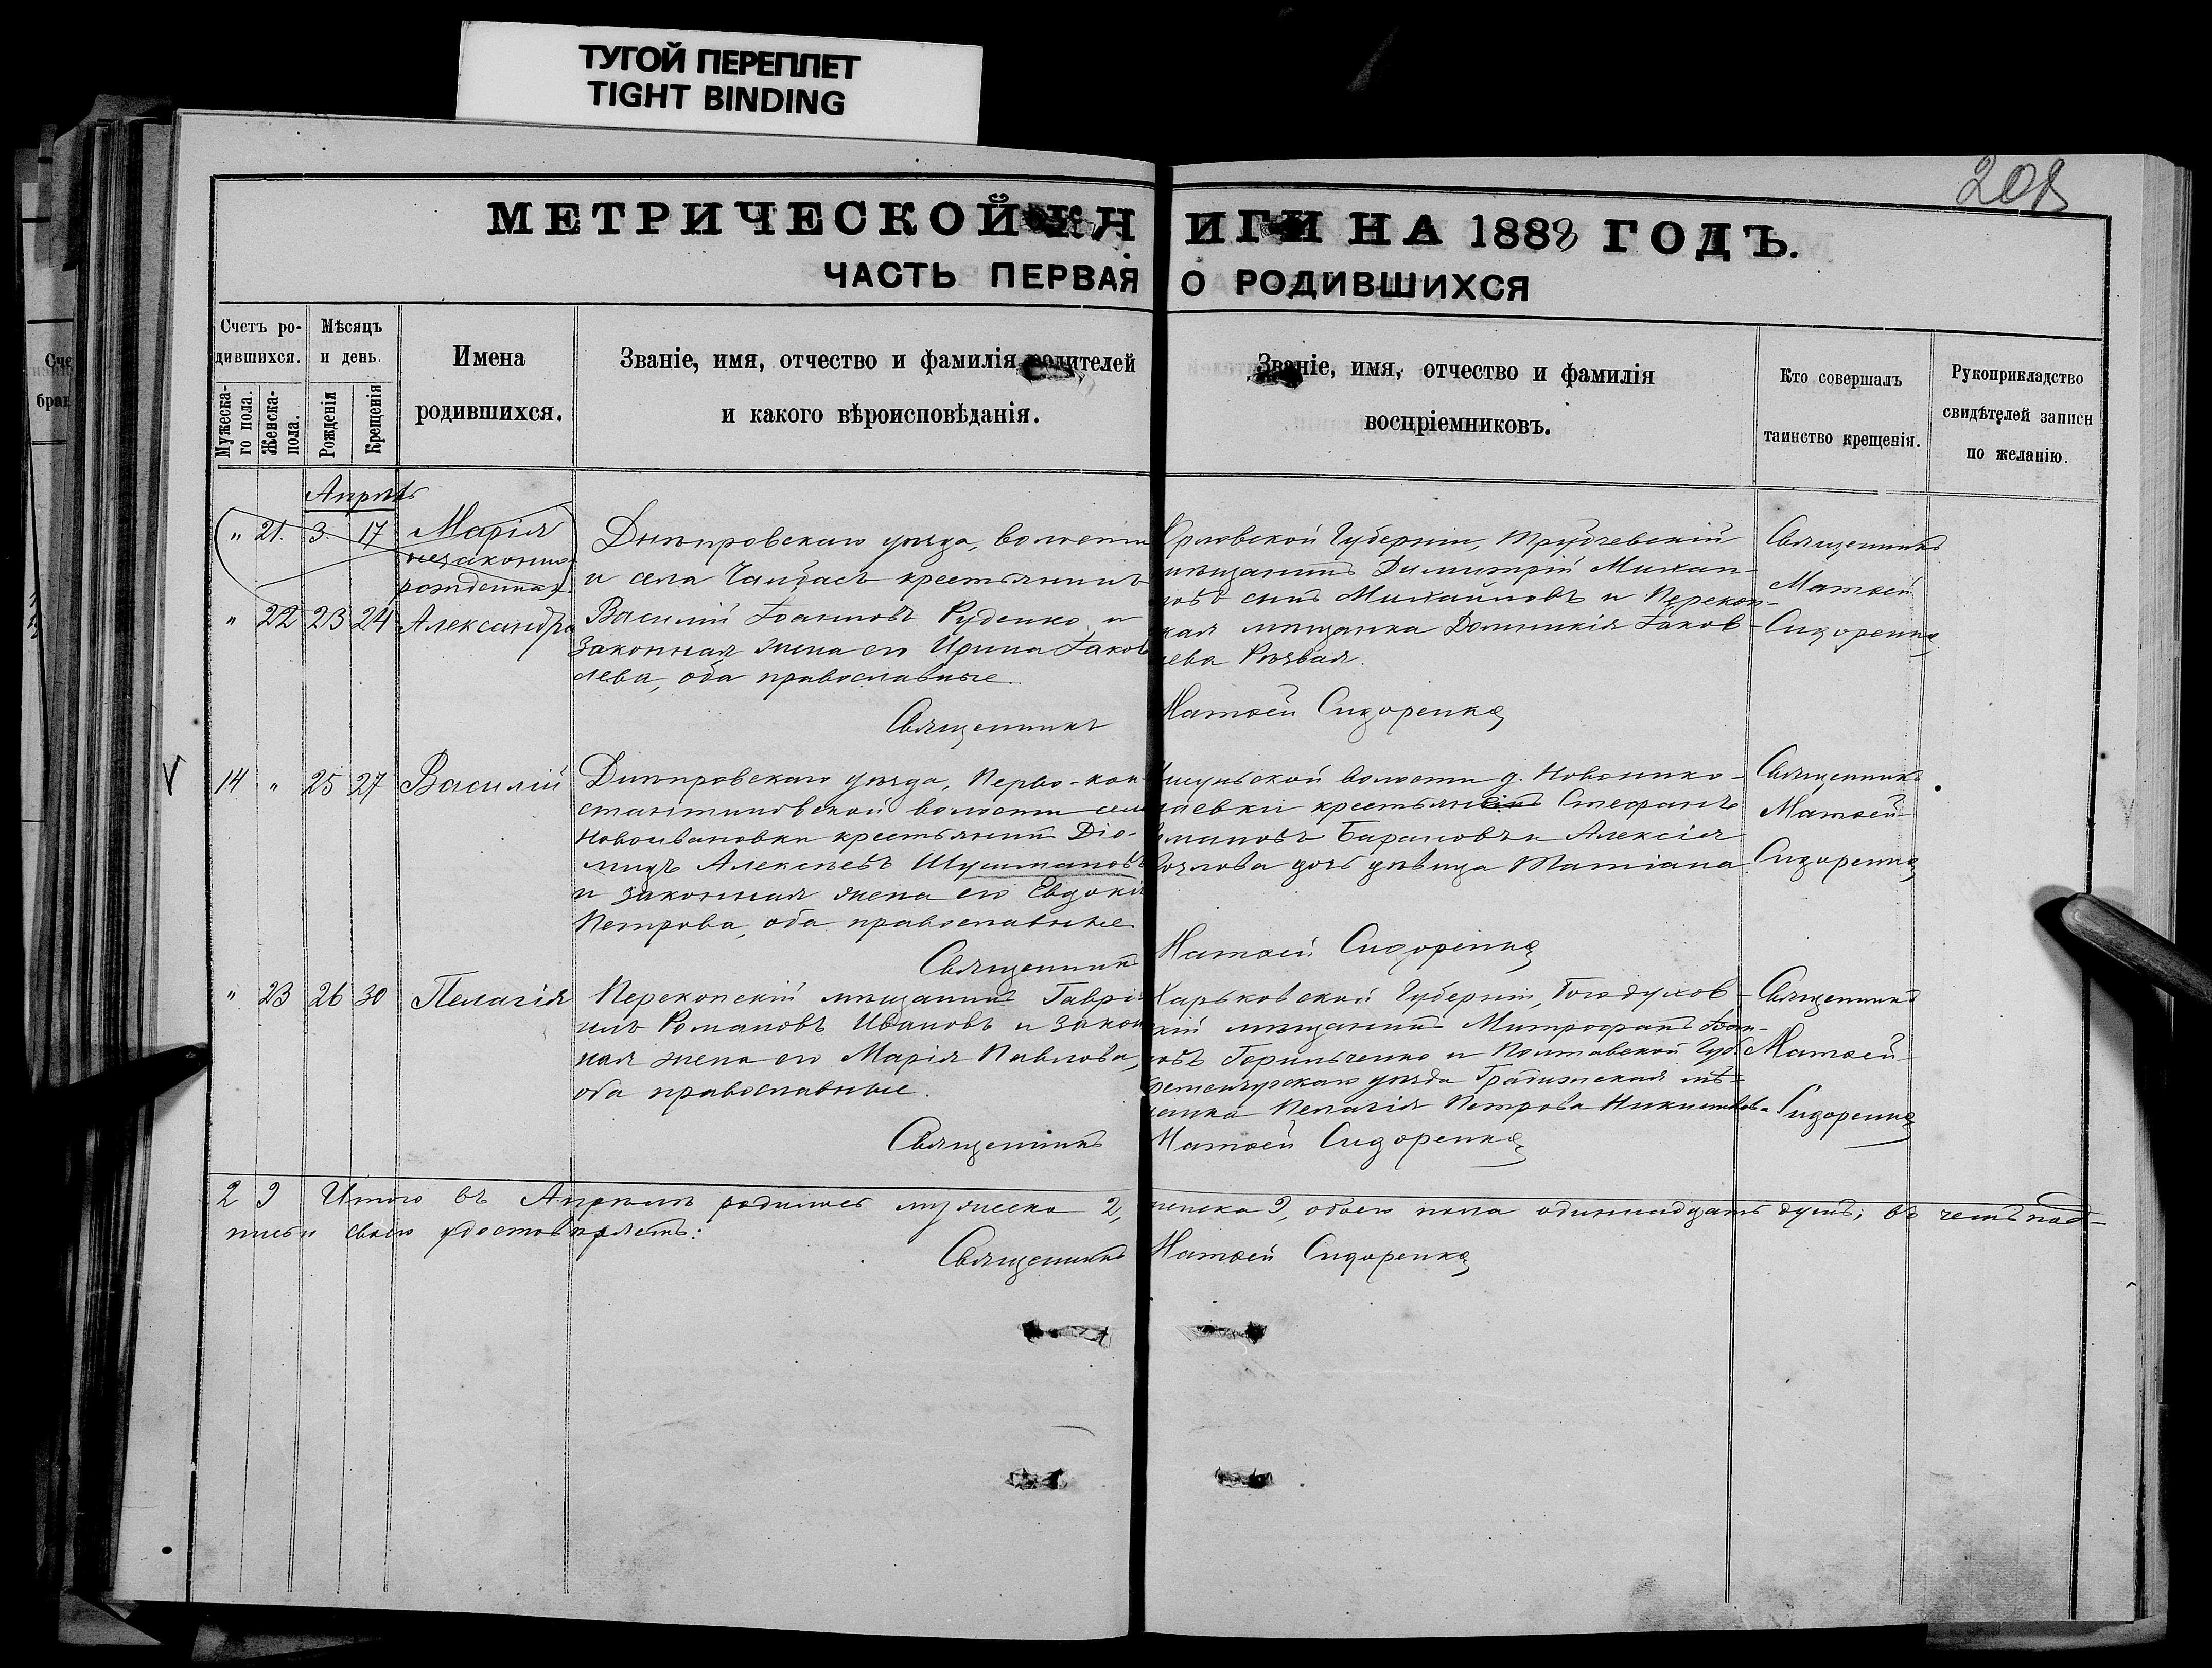 ТУГОЙ ПЕРЕПЛЕТ
TIGHT BINDING
208
МЕТРИЧЕСКОЙ КНИГИ НА 1888 ГОДЪ.
ЧАСТЬ ПЕРВАЯ О РОДИВШИХСЯ
Счетъ ро-
дившихся.
Мужеска-
го пола.
Женска-
пола.
Мѣсяцъ
и день.
Рожденія
Крещенія
Имена
родившихся.
Званіе, имя, отчество и фамилія родителей
и какого вѣроисповѣданія.
Званіе, имя, отчество и фамилія
воспріемниковъ.
Кто совершалъ
таинство крещенія.
Рукоприкладство
свидѣтелей записи
по желанію.
Апрѣль
" 21. 3. 17 Марія
незаконно
рожденная
" 22 23 24 Александра
Днѣпровскаго уѣзда, волости
и села Чалбасъ крестьянинъ
Василій Іоанновъ Руденко и
законная жена его Ирина Іаков
лева, оба православные.
Орловской Губерніи, Трубчевскій
мѣщанинъ Димитрій Михай-
ловъ сынъ Михайловъ и Перекоп-
ская мѣщанка Домникія Іаков-
лева
Священникъ
Матѳей
Сидоренко
Священникъ Матѳей Сидоренко
14 " 25 27 Василій
Днѣпровскаго уѣзда, Перво-кон
стантиновской волости села
Новоивановки крестьянинъ Діо-
мидъ Алексѣевъ
и законная жена его Евдокія
Петрова, оба православные
волости д. Новонико-
лаевки крестьянинъ Стефанъ
Барановъ и Алексія
Козлова дочь дѣвица Татіана.
Священникъ
Матѳей
Сидоренко
Священникъ Матѳей Сидоренко
" 23 26 30 Пелагія
Перекопскій мѣщанинъ Гаврі-
илъ Романовъ Ивановъ и закон
ная жена его Марія Павлова,
оба православные.
Харьковской Губерніи, Богодухов-
скій мѣщанинъ Митрофанъ Іоан-
новъ и Полтавской Губ.
Кременчугскаго уѣзда Градижская мѣ-
щанка Пелагія Петрова
Священникъ
Матѳей
Сидоренко
Священникъ Матѳей Сидоренко
2 9 Итого въ Апрѣлѣ родилось мужеска 2, женска 9, обоего пола одиннадцать душъ; въ чемъ под-
писью своею удостовѣряетъ:
Священникъ Матѳей Сидоренко